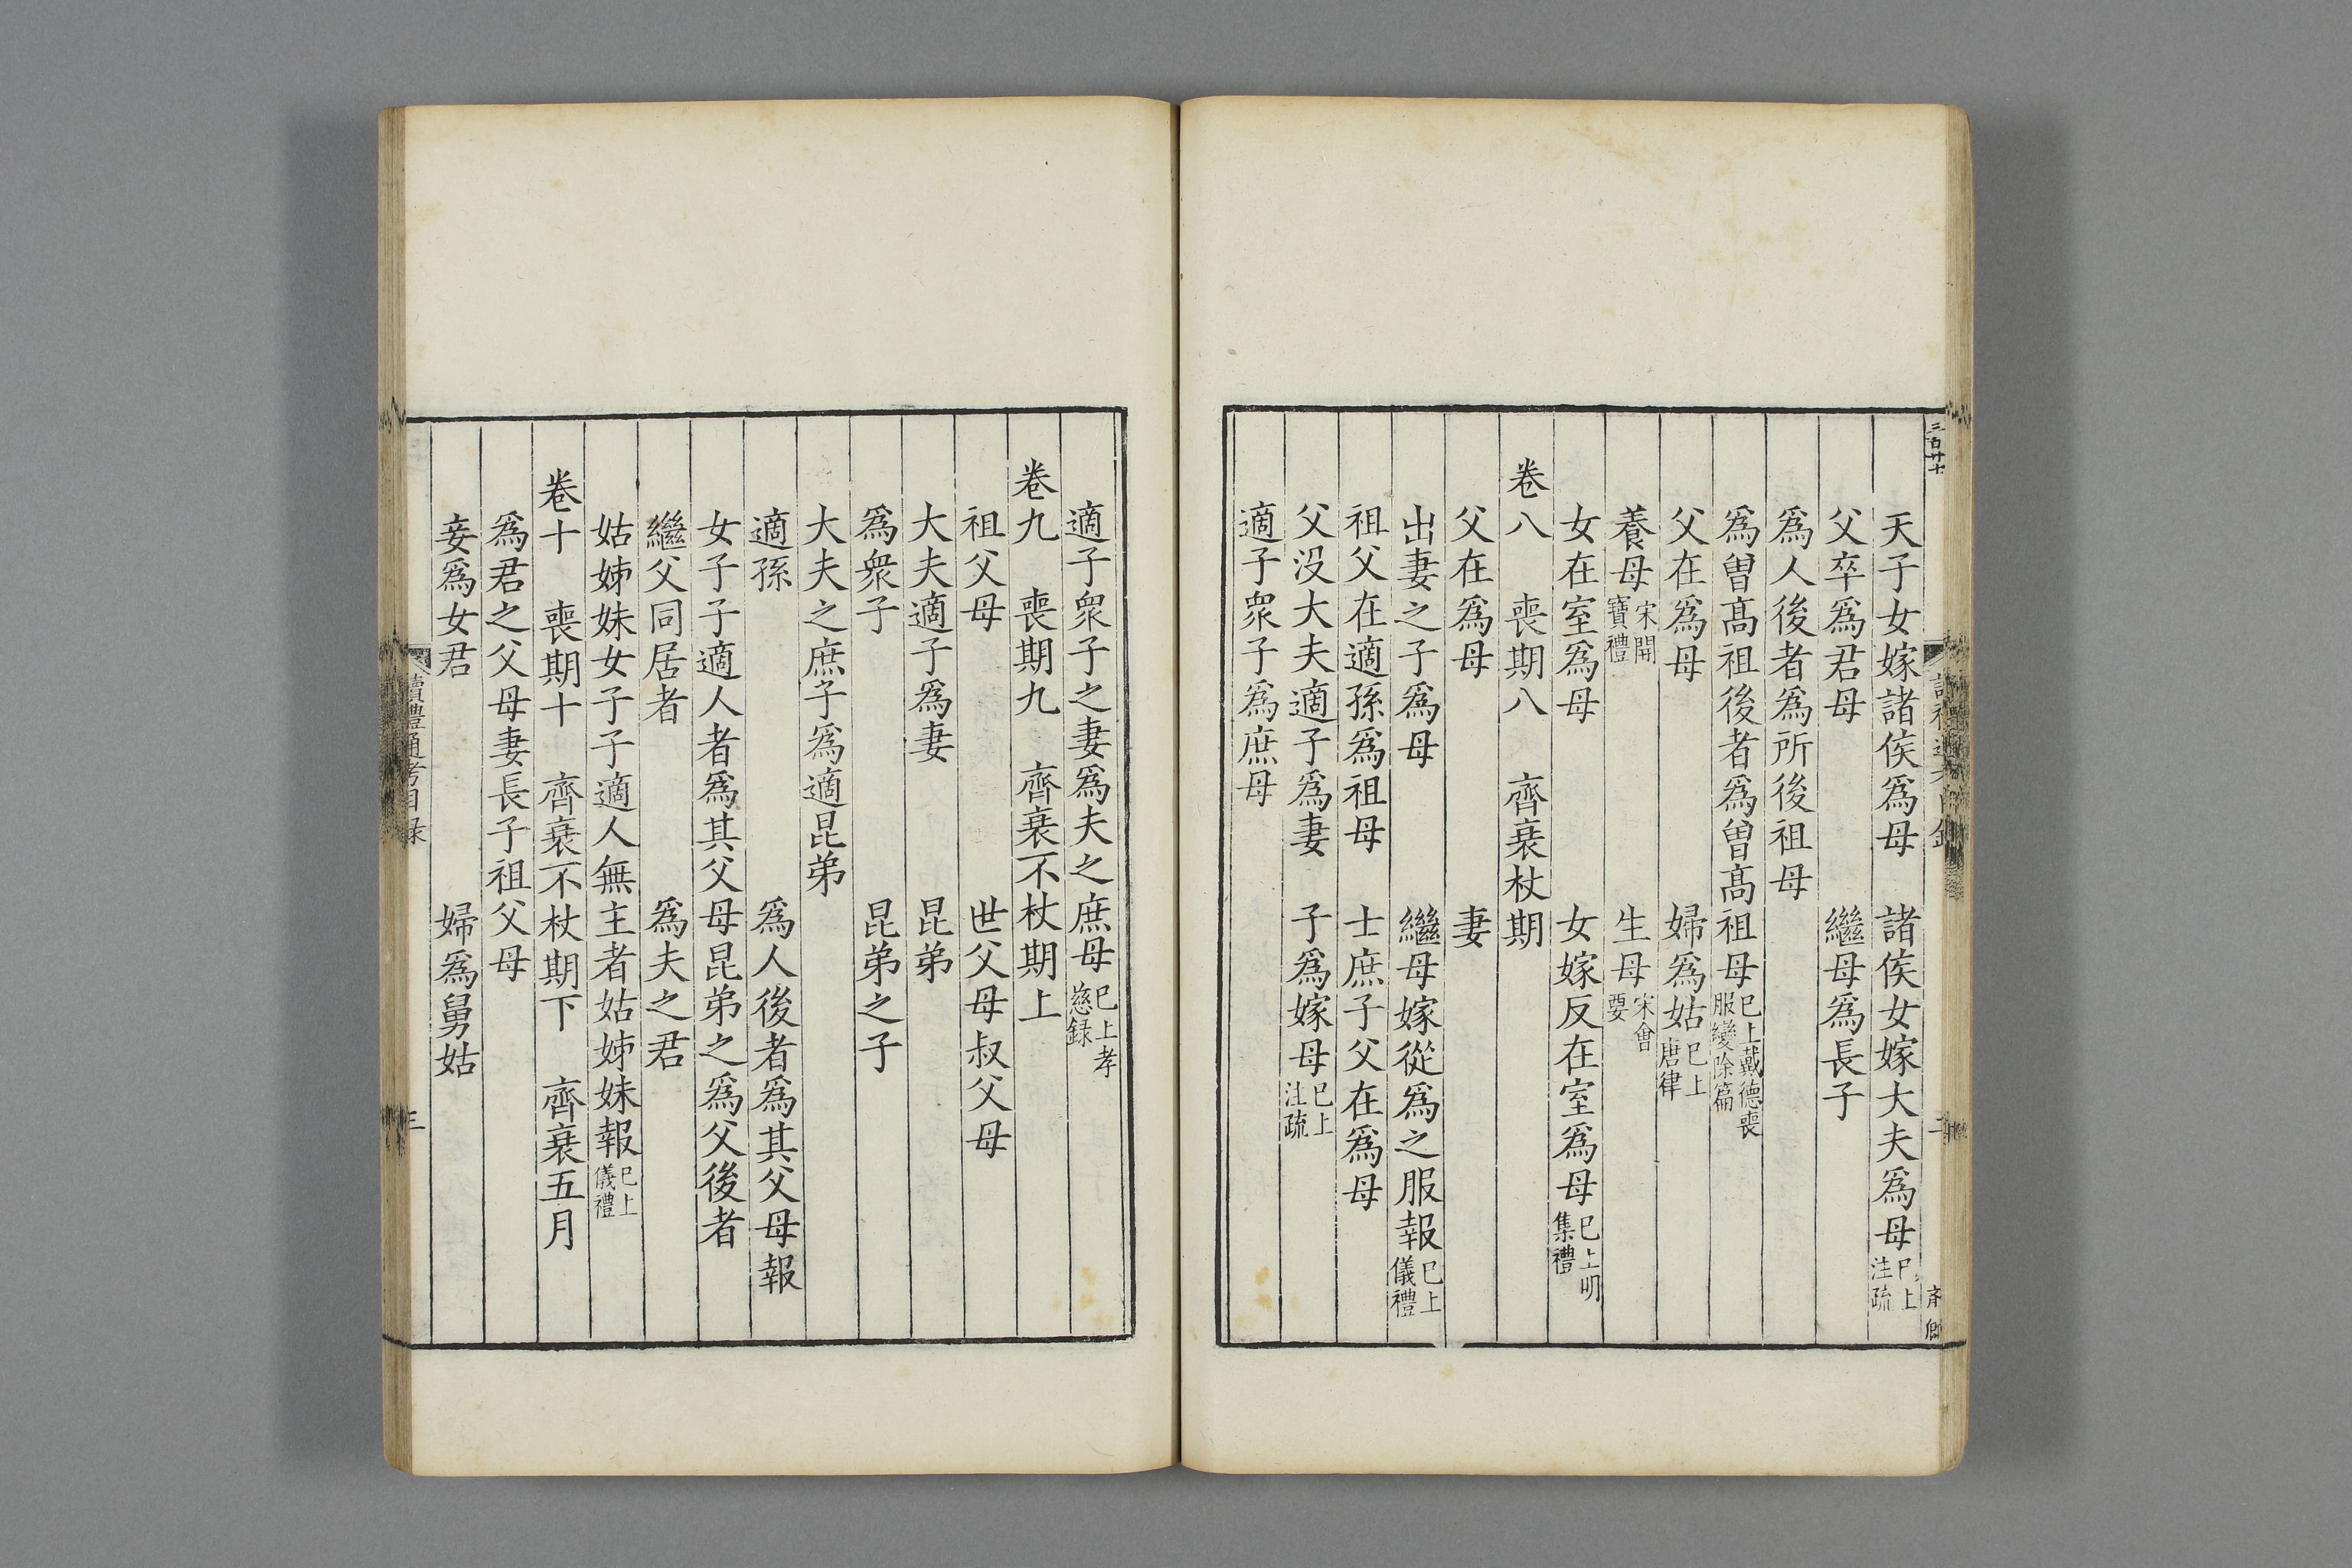 天子女嫁諸侯爲母 諸侯女嫁大夫爲母巳上注疏
父卒爲君母 繼母爲長子
爲人後者爲所後祖母
爲曾高祖後者爲曾高祖母巳上戴德喪服變除篇
父在爲母 婦爲姑巳上唐律
養母宋開寶禮 生母宋會要
女在室爲母 女嫁反在室爲母巳上明集禮
卷八 喪期八 齊衰杖期
父在爲母 妻
出妻之子爲母 繼母嫁從爲之服報巳上儀禮
祖父在適孫爲祖母 士庶子父在爲母
父没大夫適子爲妻 子爲嫁母巳上注疏
適子衆子爲庶母
適子衆子之妻爲夫之庶母巳上孝慈録
卷九 喪期九 齊衰不杖期上
祖父母 世父母叔父母
大夫適子爲妻 昆弟
爲衆子 昆弟之子
大夫之庶子爲適昆弟
適孫 爲人後者爲其父母報
女子子適人者爲其父母昆弟之爲父後者
繼父同居者 爲夫之君
姑姊妹女子子適人無主者姑姊妹報巳上儀禮
卷十 喪期十 齊衰不杖期下 齊衰五月
爲君之父母妻長子祖父母
妾爲女君 婦爲舅姑
讀禮通考目録 三